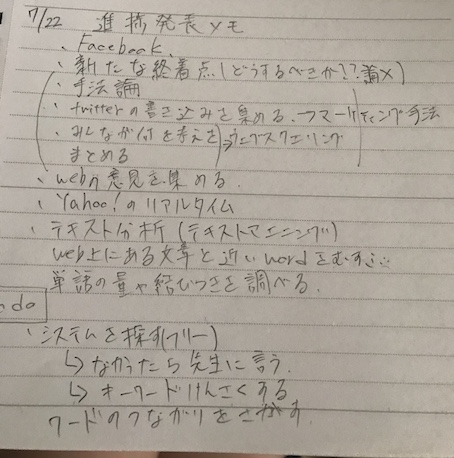 7/22 進捗発表メモ
・Facebook、
・新たな終着点(どうするべきか??論メ)
・手法論
・twitterの書き込みを集める。→マーケティング手法
・みんなが何を考え→ウェブスクエリング
まとめる
・webの意見を集める。
・Yahoo!のリアルタイム
・テキスト分析(テキストマイニング)
web上にある文章と近いwordをむす
単語の量や結びつきを調べる。
do
・システムを探す(フリー)
↳なかったら先生に言う。
↳キーワードけんさくする
ワードのつながりをさがす。